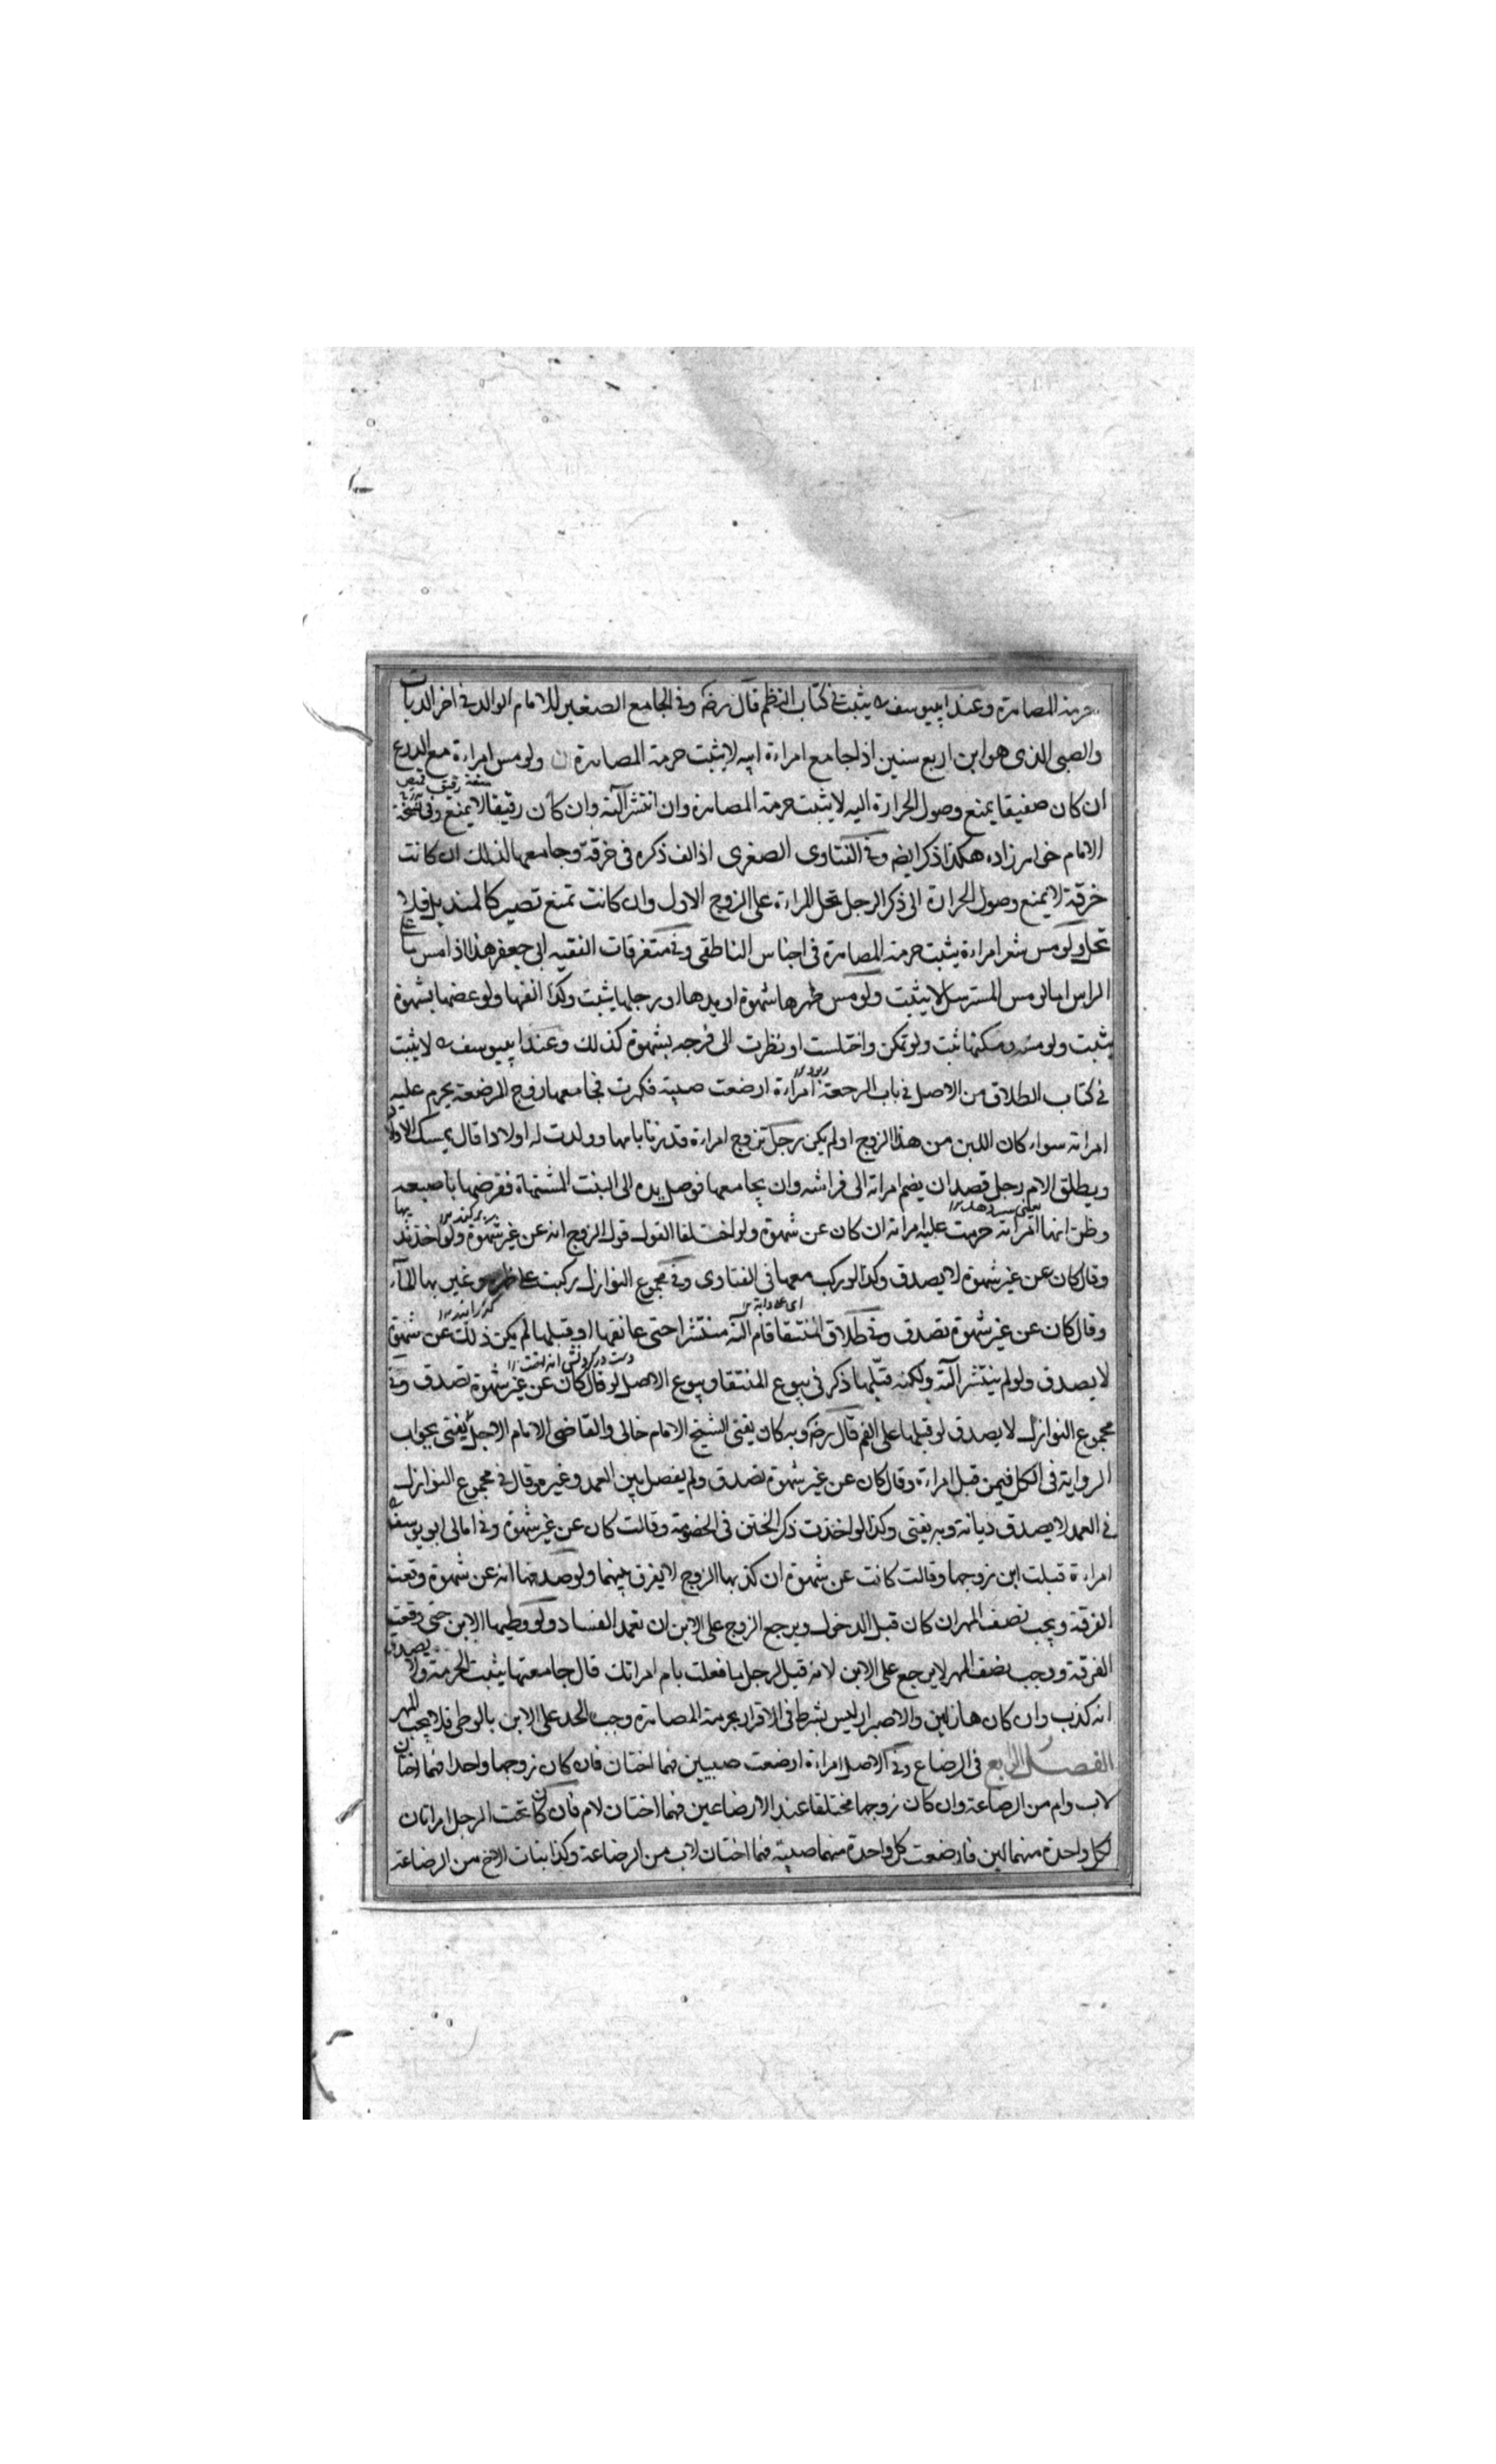 حرمة المصاهرة وعند ابيوسف ره يثبت في كتاب النظم قال رضه وفي الجامع الصغير للامام الوالد في اخر الديات
والصبى الذى هو ابن اربع سنين اذا جامع امراءة ابيه لا يثبت حرمة المصاهرة ولو مس امراءة مع الدرع
ان كان صفيقا يمنع وصول الحرارة اليه لا يثبت حرمة المصاهرة وان انتشر آلته وان كان رقيقا لا يمنع وفى نسخة
الامام خواهر زاده هكذا ذكر ايضه وفي الفتاوى الصغرى اذا لف ذكره فى خرقة وجامعها لذلك ان كانت
خرقة لا يمنع وصول الحرارة الى ذكر الرجل تحل المراءة على الزوج الاول وان كانت تمنع تصير كالمنديل فلا
تحل ولو مس شعر امراءة يثبت حرمة المصاهرة فى اجناس الناطقى وفي متفرقات الفقيه ابى جعفر هذا اذا مس ما على
الراس اما لو مس المسترسل لا يثبت ولو مس ظهرها شهوة او يدها او رجلها يثبت وكذا انفها ولو عضها بشهوة
يثبت ولو مسه ومكنها ثبت ولو تمكن واختلست او نظرت الى فرجه بشهوة كذلك وعند ابيوسف ره لا يثبت
في كتاب الطلاق من الاصل في باب الرجعة امراءة ارضعت صبية فكبرت فجامعها زوج المرضعة يحرم عليه
امراته سواء كان اللبن من هذا الزوج او لم يكن رجل تزوج امراءة قد زنا بامها وولدت له اولادا قال يمسك الاولاد
ويطلق الام رجل قصد ان يضم امراته الى فراشه وان يجامعها فوصل يده الى البنت المشتهاة فقرضها باصبعه
وظن انها امراته حرمت عليه امراته ان كان عن شهوة ولو اختلفا القول قول الزوج انه عن غير شهوة ولو اخذ ثديها
وقال كان عن غير شهوة لا يصدق وكذا لو ركب معها فى الفتاوى وفي مجموع النوازل ركبت على ظهره وعبر بها الماء
وقال كان عن غير شهوة تصدق وفي طلاق المنتقا قام آلته منتشرا حتى عانقها او قبلها لم يكن ذلك عن شهوة
لا يصدق ولو لم ينتشر آلته ولكنه قبّلها ذكر فى بيوع المنتقا وبيوع الاصل لو قال كان عن غير شهوة تصدق وفي
مجموع النوازل لا يصدق لو قبلها على الفم قال رضه وبه كان يفتى الشيخ الامام خالى والقاضى الامام الاجل يفتى بجواب
الرواية فى الكل فيمن قبل امراءة وقال كان عن غير شهوة تصدق ولم يفصل بين العمد وغيره وقال في مجموع النوازل
في العمد لا يصدق ديانة وبه يفتى وكذا لو اخذت ذكر الختن فى الخصومة وقالت كان عن غير شهوة وفي امالى ابو يوسف ره
امراءة قبلت ابن زوجها وقالت كانت عن شهوة ان كذبها الزوج لا يفرق بينهما ولو صدقها انه عن شهوة وقعت
الفرقة ويجب نصف المهر ان كان قبل الدخول ويرجع الزوج على الابن ان تعمد الفساد ولو وطيها الابن حتى وقعت
الفرقة ووجب نصف المهر لا يرجع على الابن لانه قيل لرجل ما فعلت بام امراتك قال جامعتها يثبت الحرمة ولا يصدق
انه كذب وان كان هازلين والاصرار ليس بشرط فى الاقرار بحرمة المصاهرة وجب الحد على الابن بالوطى فلا يجب المهر
الفصل الرابع فى الرضاع وفي الاصل امراءة ارضعت صبيين فهما اختان فان كان زوجها واحدا فهما اختان
لاب وام من الرضاعة وان كان زوجها مختلفا عند الارضاعين فهما اختان لام فان كان تحت الرجل امراتان
لكل واحدة منهما لبن فارضعت كل واحدة منهما صبية فهما اختان لاب من الرضاعة وكذا بنات الاخ من الرضاعة